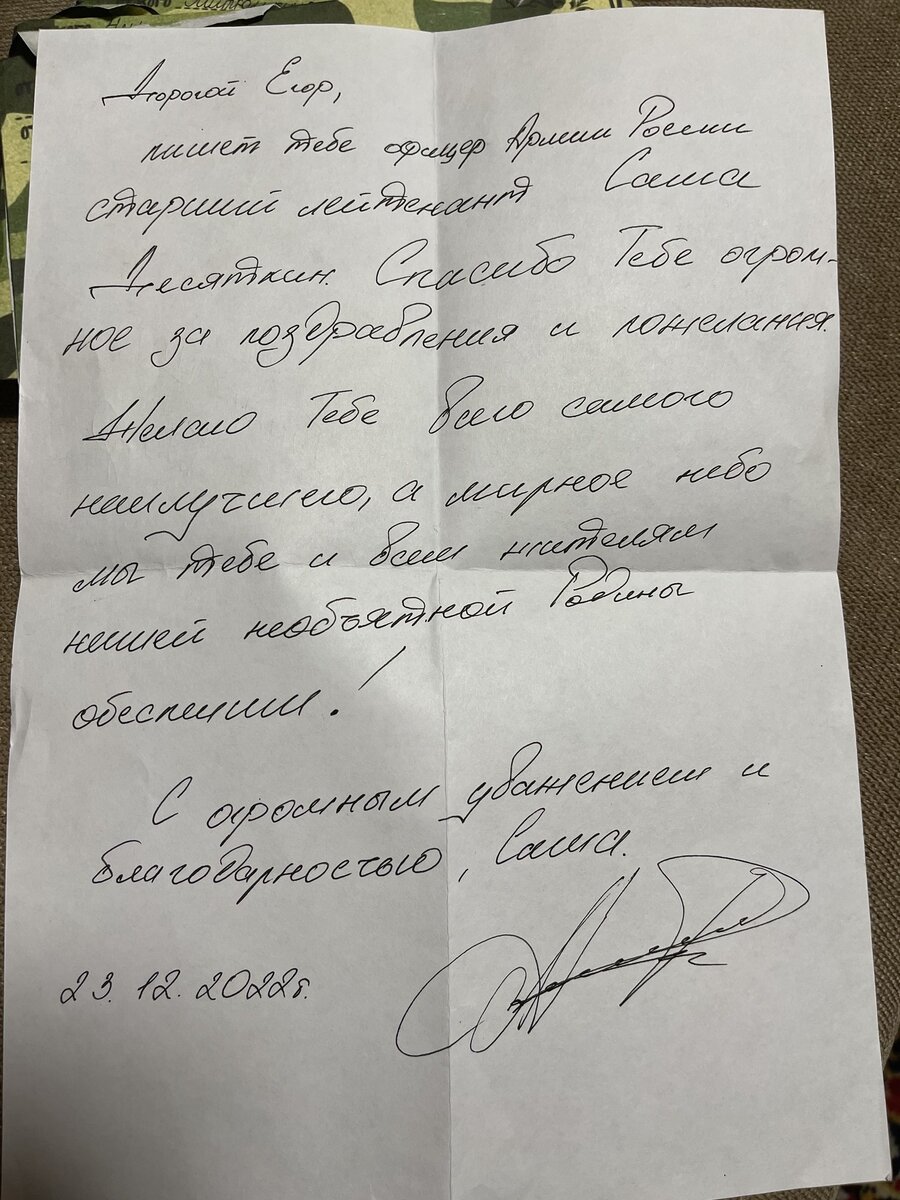 Дорогой Егор,
пишет тебе офицер Армии России
старший лейтенант Саша
Десяткин. Спасибо Тебе огром-
ное за поздравления и пожелания.
Желаю Тебе всего самого
наилучшего, а мирное небо
мы тебе и всем жителям
нашей необъятной Родины
обеспечим!
С огромным уважением и
благодарностью, Саша.
23.12.2022г.